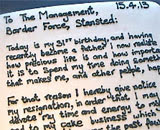 15.4.13
To The Management,
Border Force, Stansted:
Today is my 31st birthday, and having
recently become a father, I now realise
how precious life is and how important
it is to spend my time doing something
that makes me, and other people, happy.
For that reason I hereby give notice
my resignation, in order that I may
devote my time and energy to my
and to my cake business which